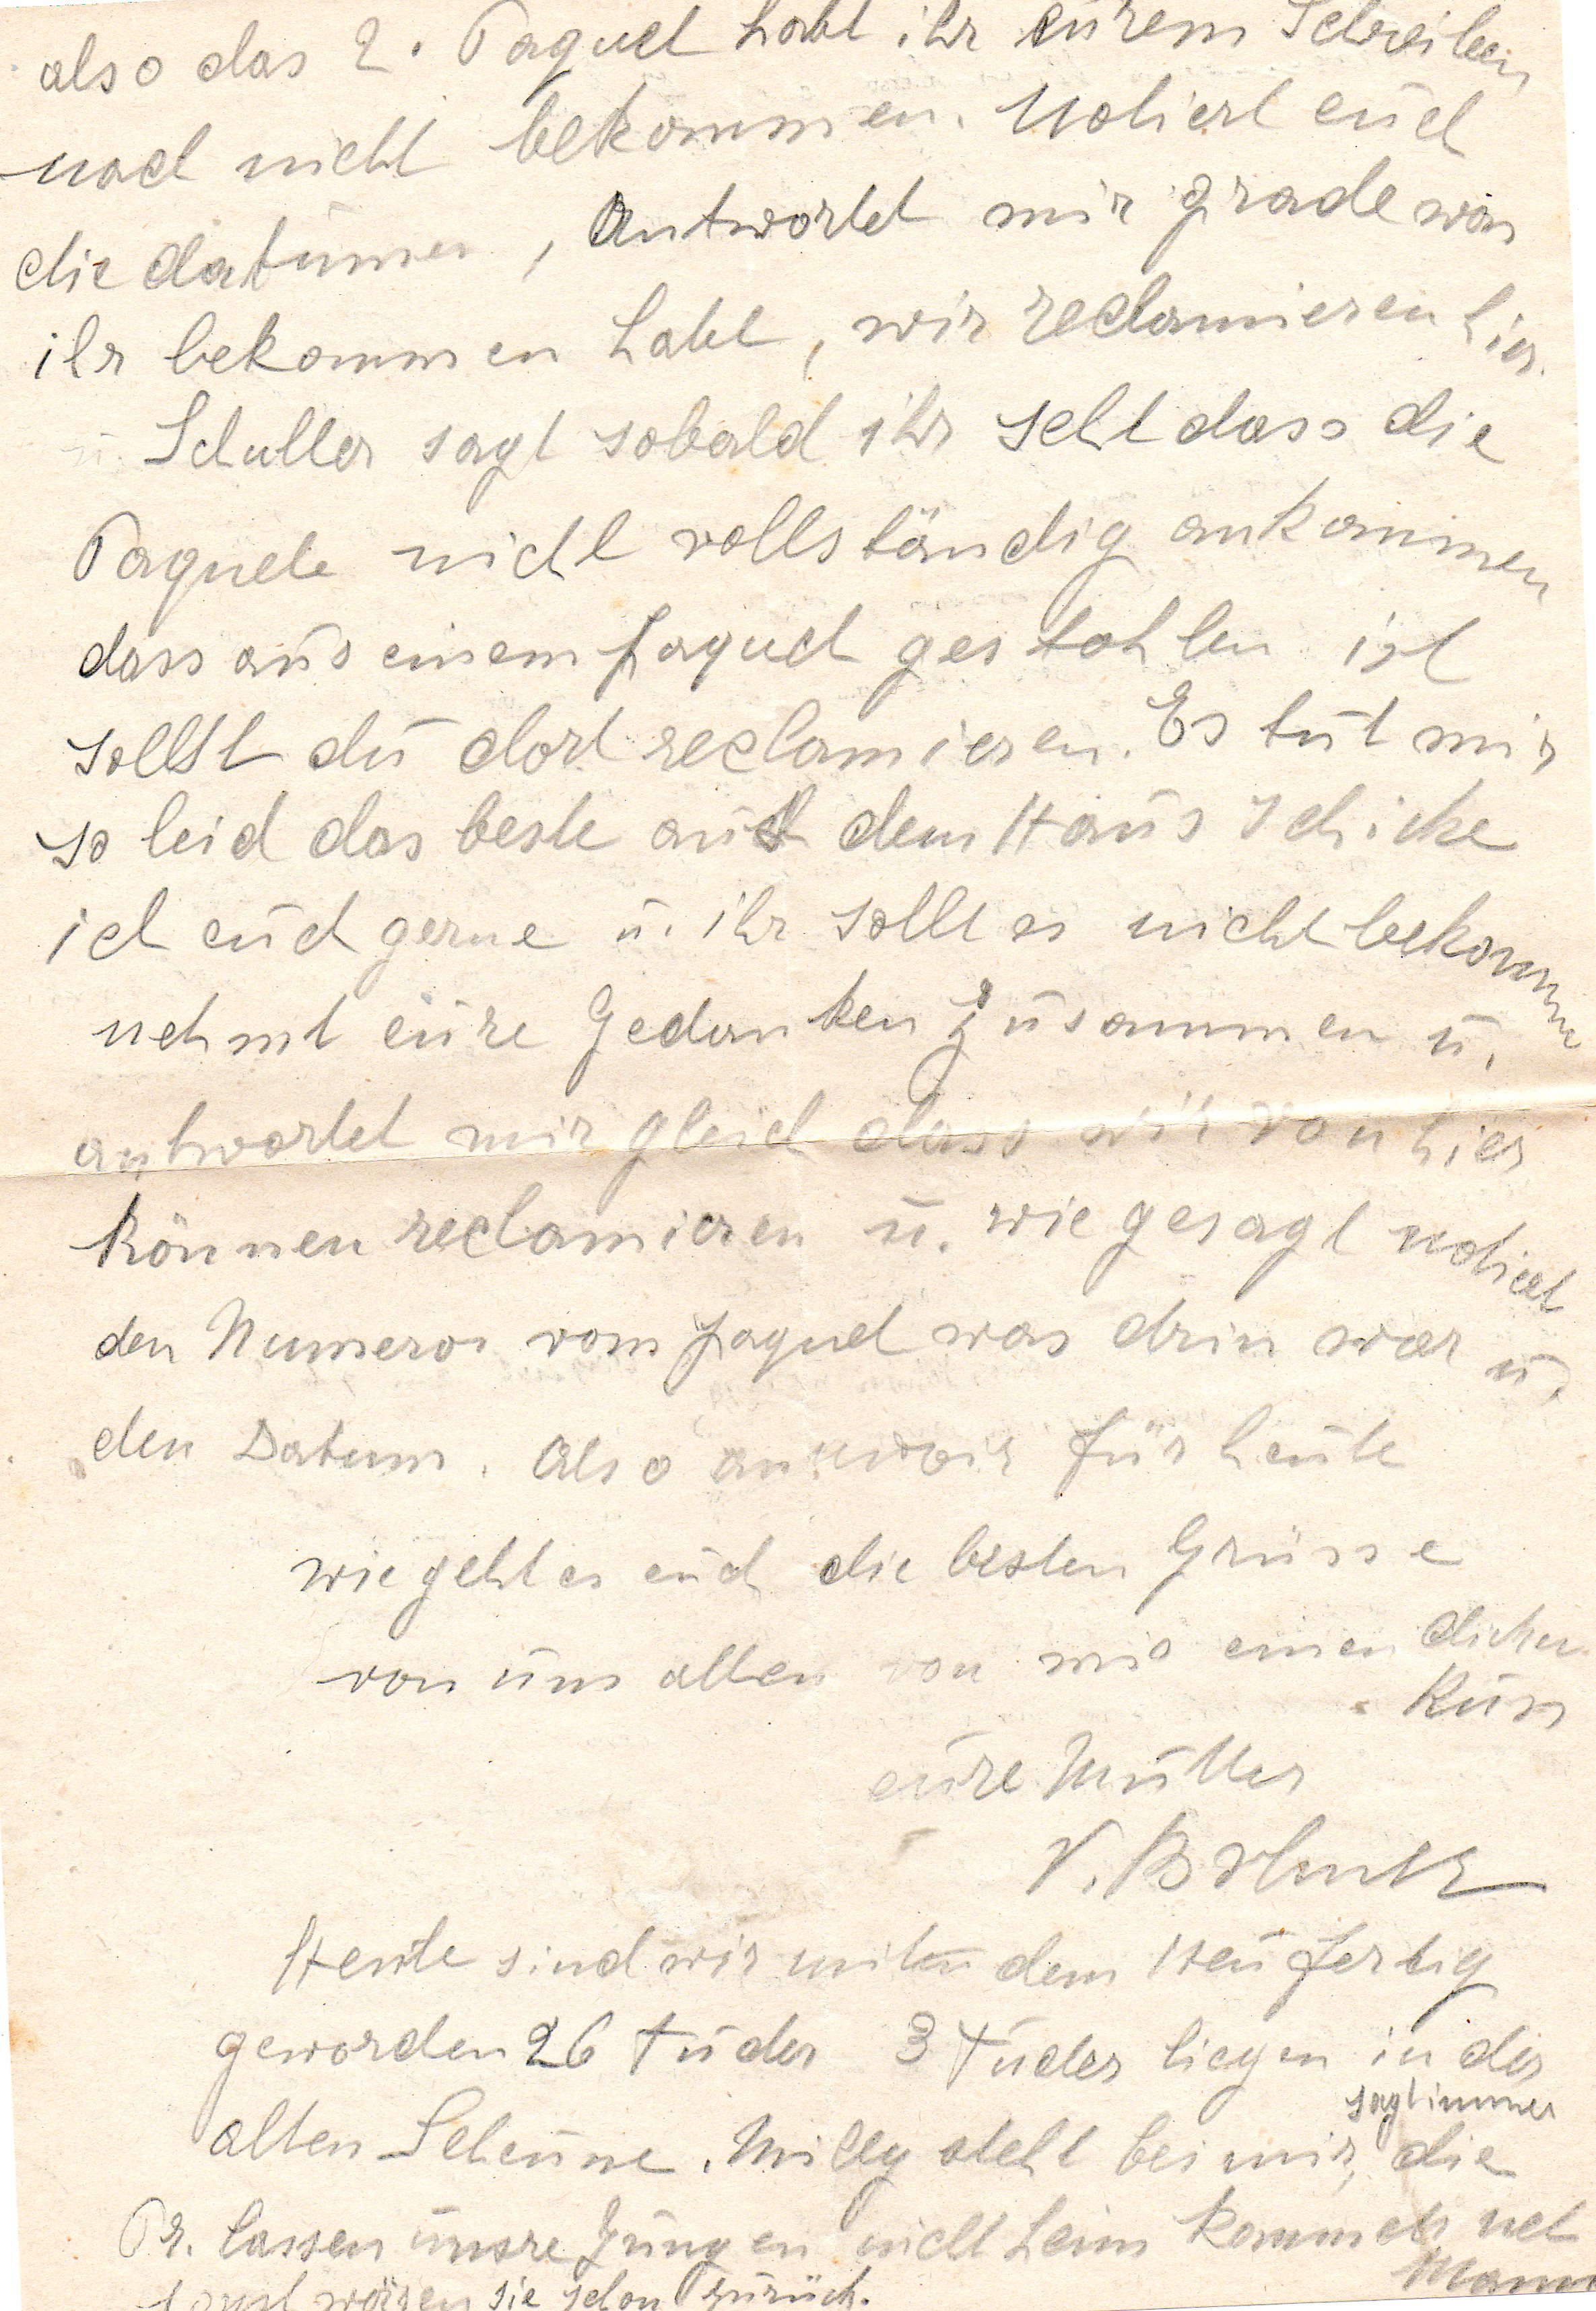 also das 2. Paquet habt ihr eurem Schreiben
nach nicht bekommen. Notiert euch
die datumer, Antwortet mir grade was
ihr bekommen habt, wir reclamieren hier.
u. Schuller sagt sobald ihr seht dass die
Paquete nicht vollständig ankommen
dass aus einem paquet gestohlen ist
sollst du dort reclamieren. Es tut mir
so leid das beste aus dem Haus schicke
ich euch gerne u. ihr sollt es nicht bekommen
nehmt eure Gedanken zusammen u.
antwortet mir gleich dass wir von hier
können reclamieren u. wie gesagt notiert
den Numero vom paquet was drin war u.
den Datum. Also für heute
wie geht es euch die besten Grüsse
von uns allen von mir einen dicken
Kuss
eure Mutter
V.
Heute sind wir mit dem Heu fertig
geworden 26 Fuder 3 Fuder liegen in der
alten Scheune. Milly steht bei mir, sagt immer die
Pr. lassen unsre Jungen nicht heim kommen net
Mama
sonst wären sie schon zurück.